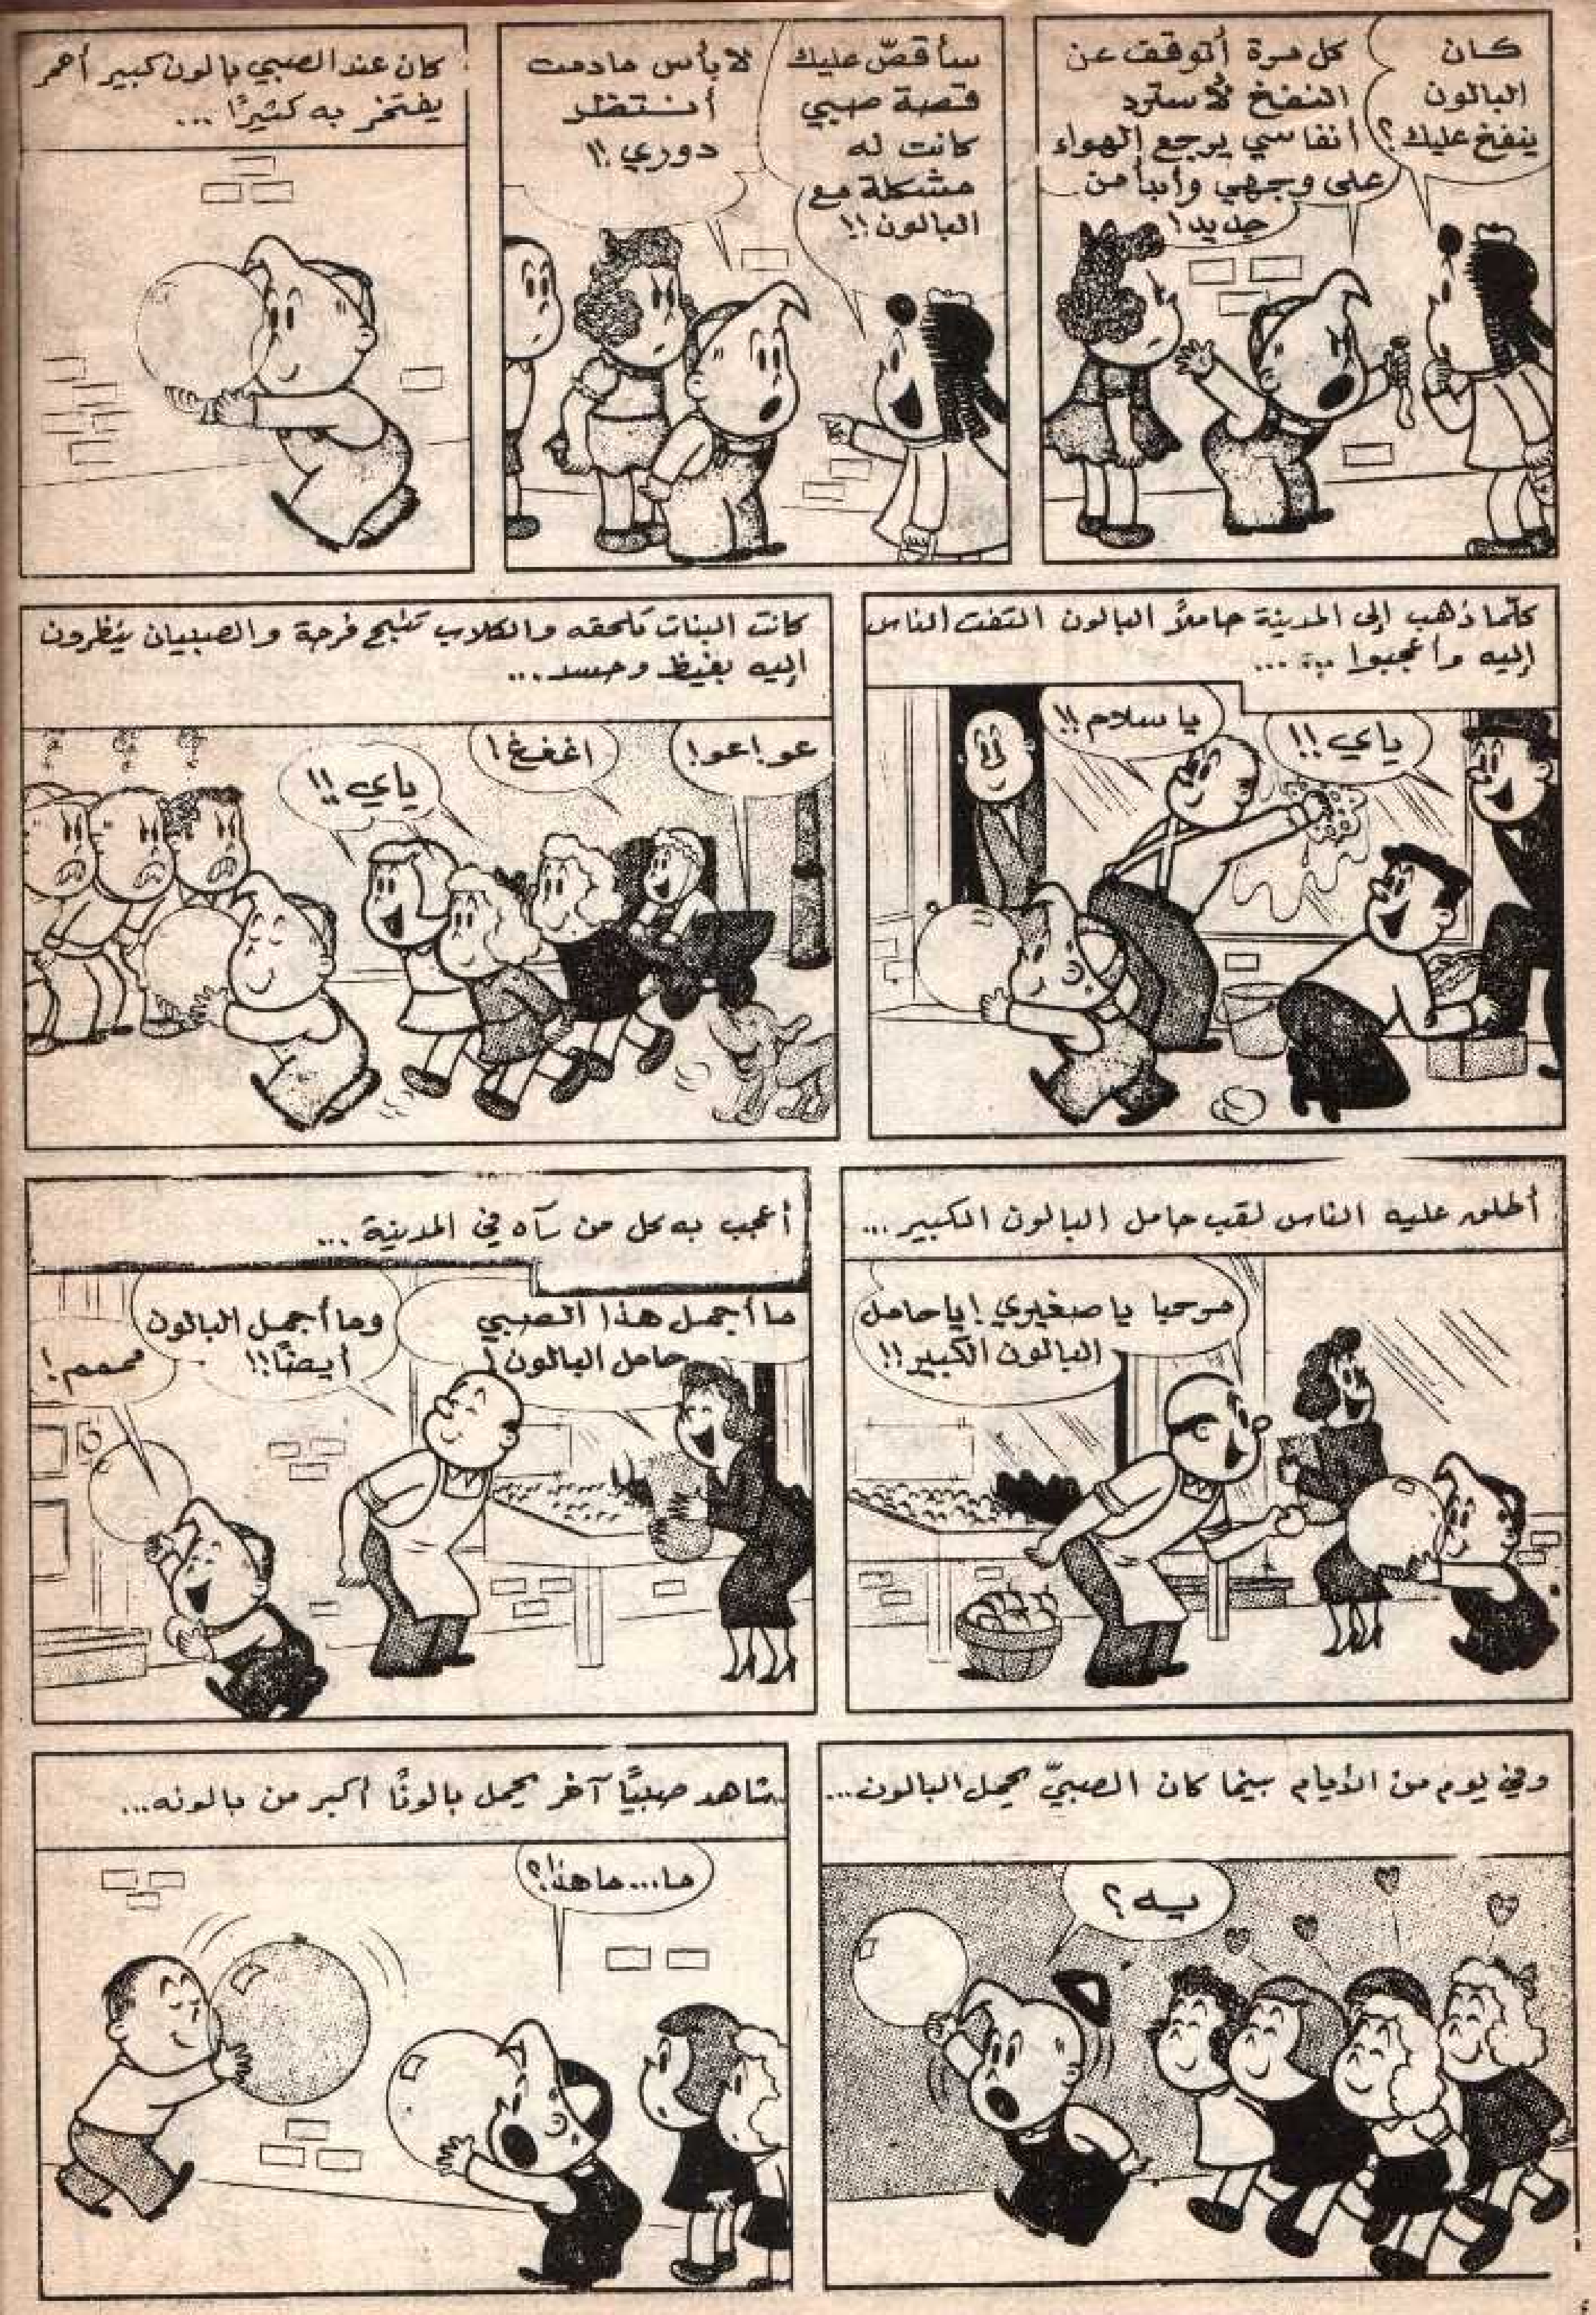 كان
البالون
ينفخ عليك؟
كل مرة أتوقف عن
النفخ لأسترد
أنفاسي يرجع الهواء
على وجهي وأبدأ من
جديد!
سأقصّ عليك
قصة صبي
كانت له
مشكلة مع
البالون!!
لا بأس مادمت
أنتظر
دوري!!
كان عند الصبي بالون كبير أحمر
يفتخر به كثيرًا ...
كلّما ذهب إلى المدينة حاملاً البالون التفت الناس
إليه وأعجبوا به ...
ياي!!
يا سلام!!
كانت البنات تلحقه والكلاب تنبح فرحة والصبيان ينظرون
إليه بغيظ وحسد...
عو!عو!
اغغغ!
ياي!!
أطلق عليه الناس لقب حامل البالون الكبير...
مرحبا يا صغيري! يا حامل
البالون الكبير!!
أعجب به كل من رآه في المدينة ...
ما أجمل هذا الصبي
حامل البالون!
وما أجمل البالون
أيضًا!!
ممم!
وفي يوم من الأيام بينما كان الصبيّ يحمل البالون...
يه؟
شاهد صبيًا آخر يحمل بالونًا أكبر من بالونه...
ما...ما هذا؟